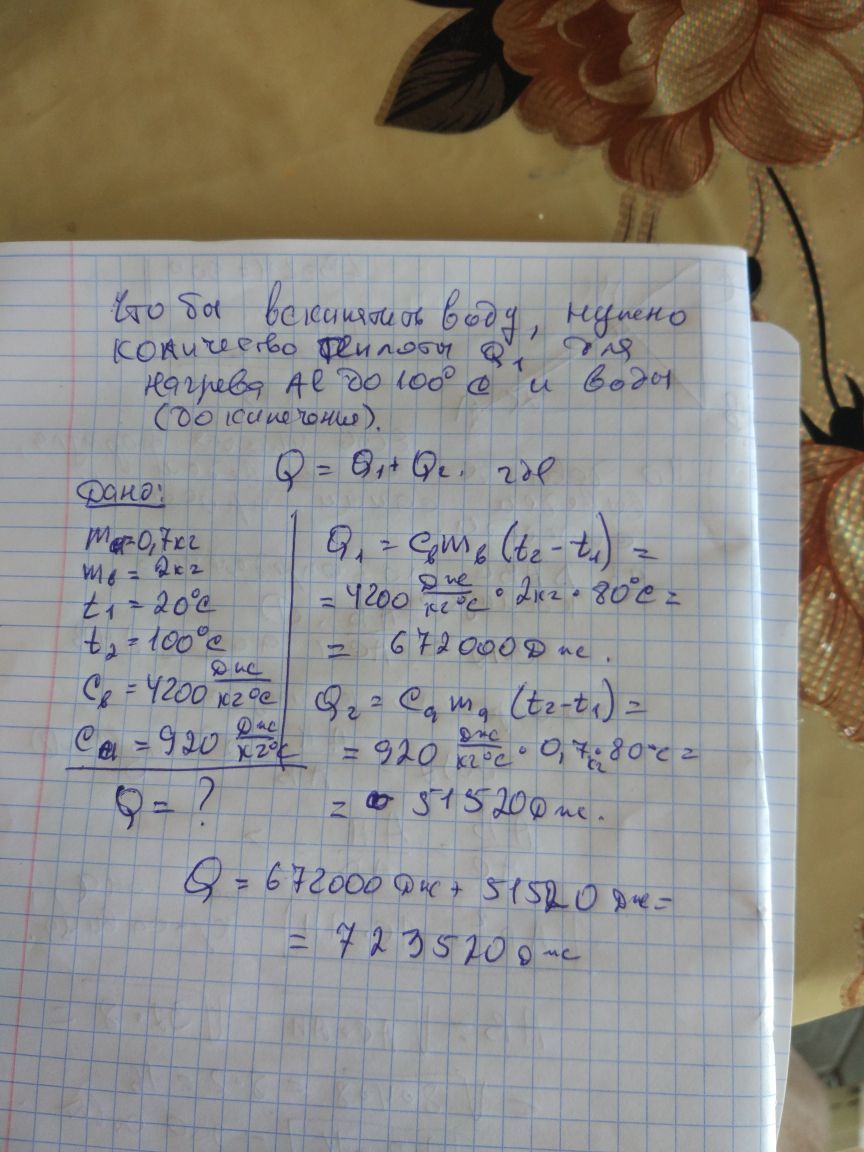 Что бы вскипятить воду, нужно
количество теплоты Q₁ для
нагрева Al до 100°C и воды
(до кипечения).
Q = Q₁ + Q₂. где
Дано:
mₐ=0,7кг
mв = 2кг
t₁ = 20°C
t₂ = 100°C
Cв = 4200 Дж/кг°C
Cₐ = 920 Дж/кг°C
Q = ?
Q₁ = Cвmв (t₂ - t₁) =
= 4200 Дж/кг°C · 2кг · 80°C =
= 672000 Дж.
Q₂ = Cₐ mₐ (t₂-t₁) =
= 920 Дж/кг°C · 0,7кг · 80°C =
= 51520 Дж.
Q = 672000 Дж + 51520 Дж =
= 723520 Дж